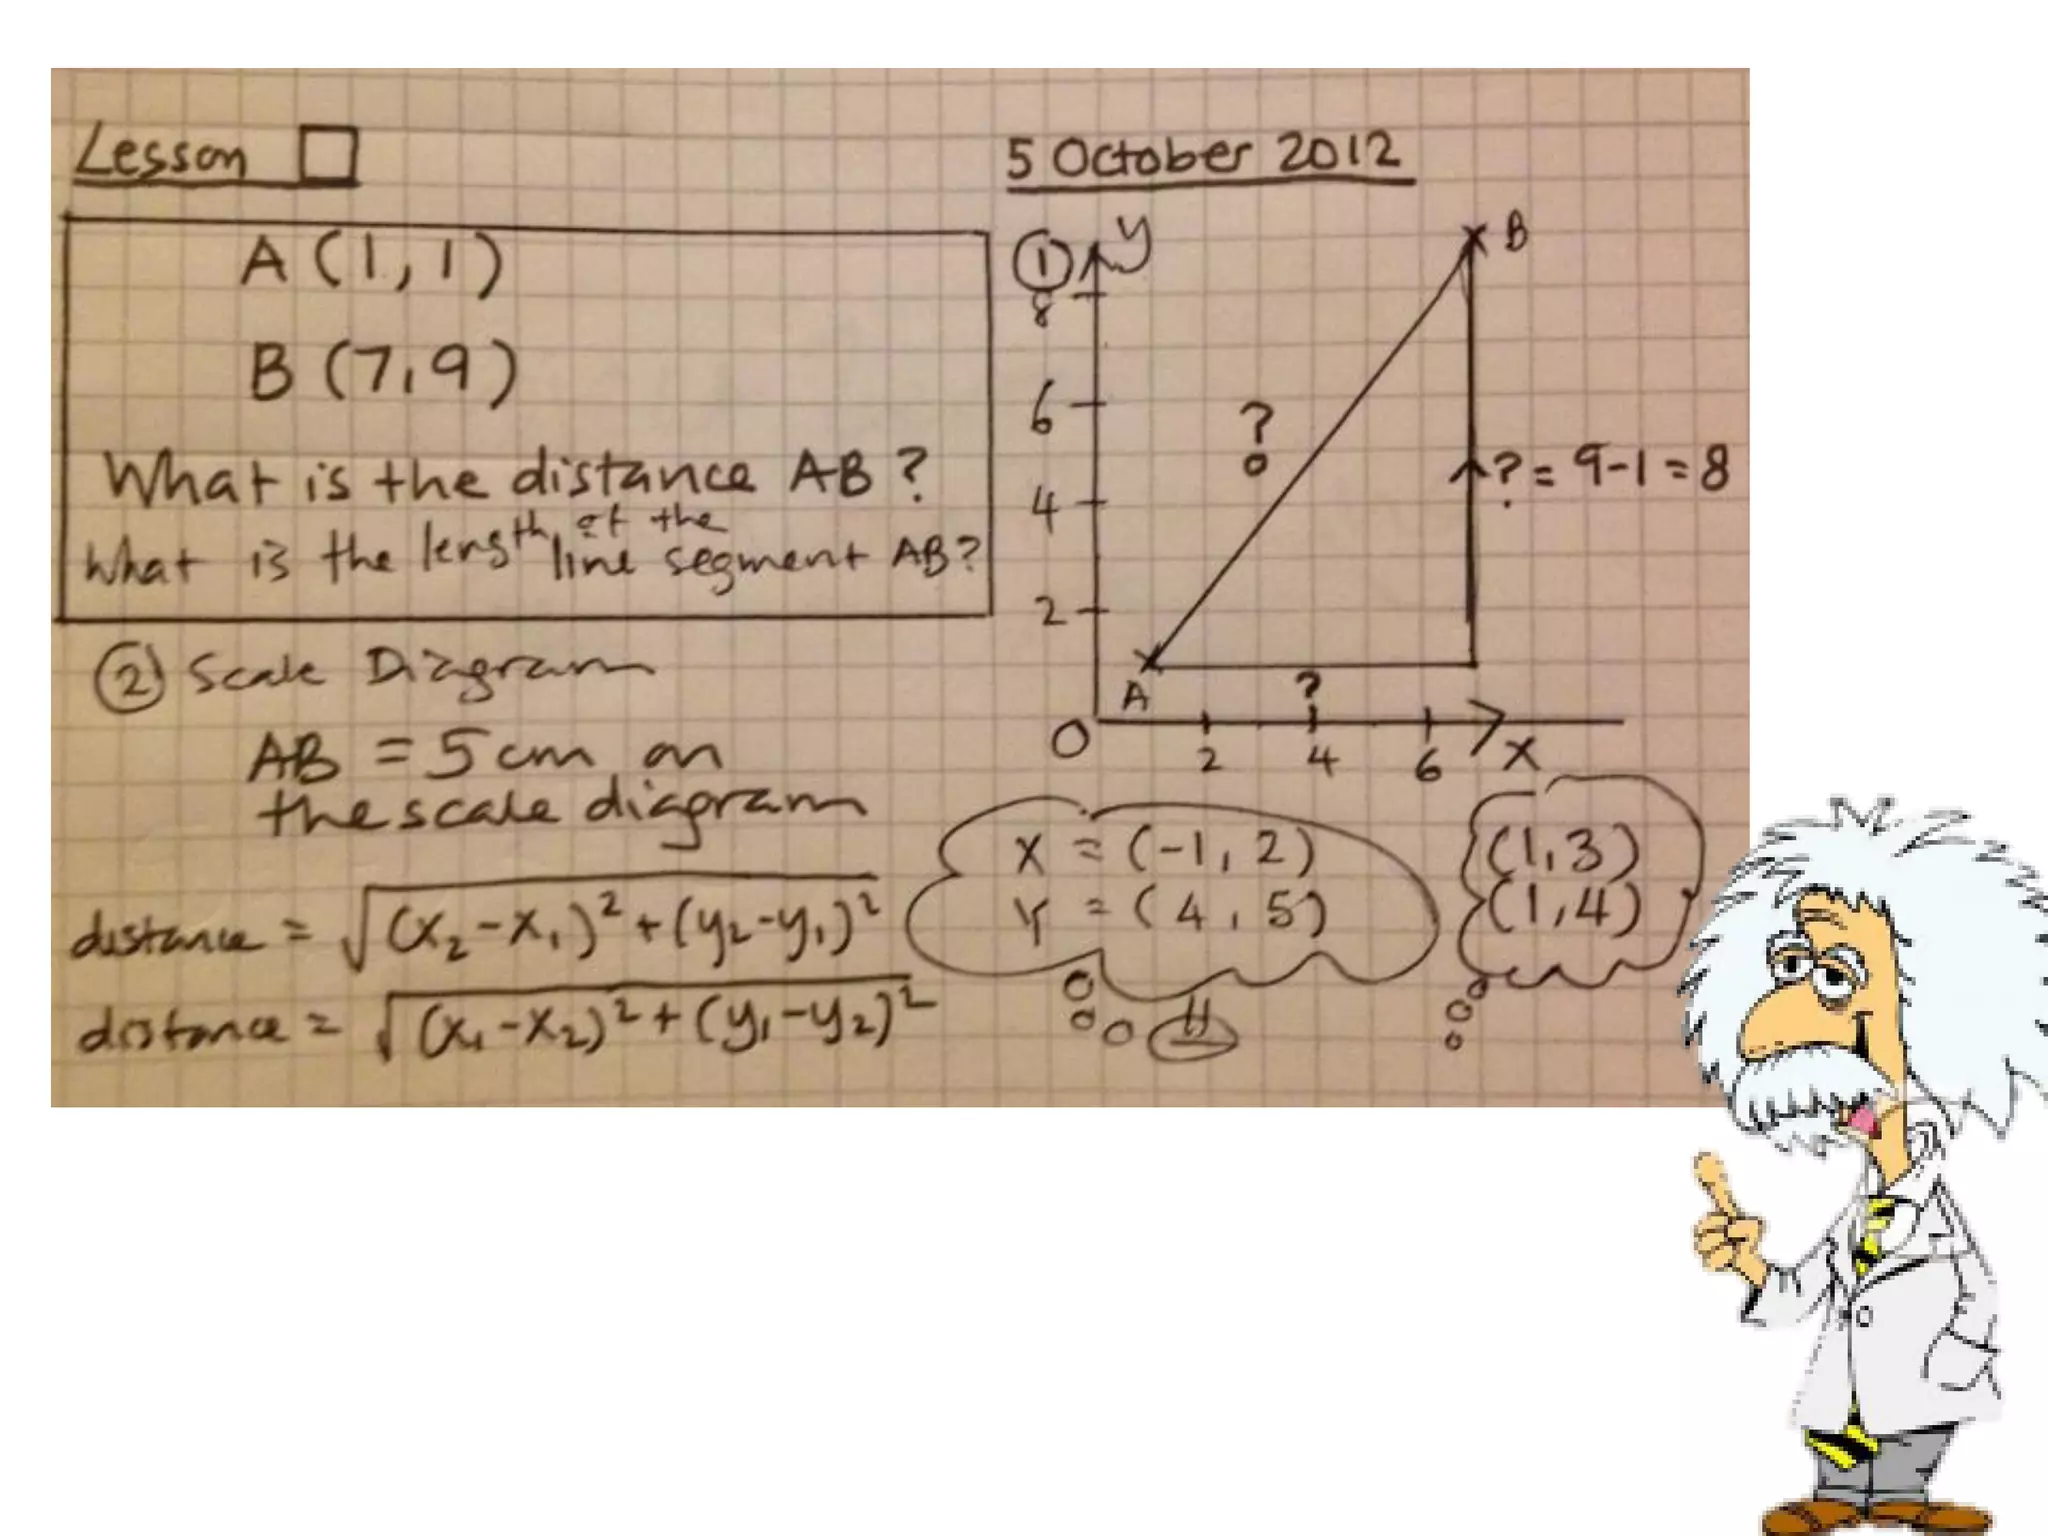 Lesson □
5 October 2012
A (1, 1)
B (7, 9)
What is the distance AB?
What is the length of the
line segment AB?
① y
8
6
4
2
O
2 4 6 x
A
B
?
?
? = 9-1 = 8
② Scale Diagram
AB = 5 cm on
the scale diagram
distance = √(x₂-x₁)²+(y₂-y₁)²
distance = √(x₁-x₂)²+(y₁-y₂)²
X = (-1, 2)
Y = (4, 5)
(1,3)
(1,4)